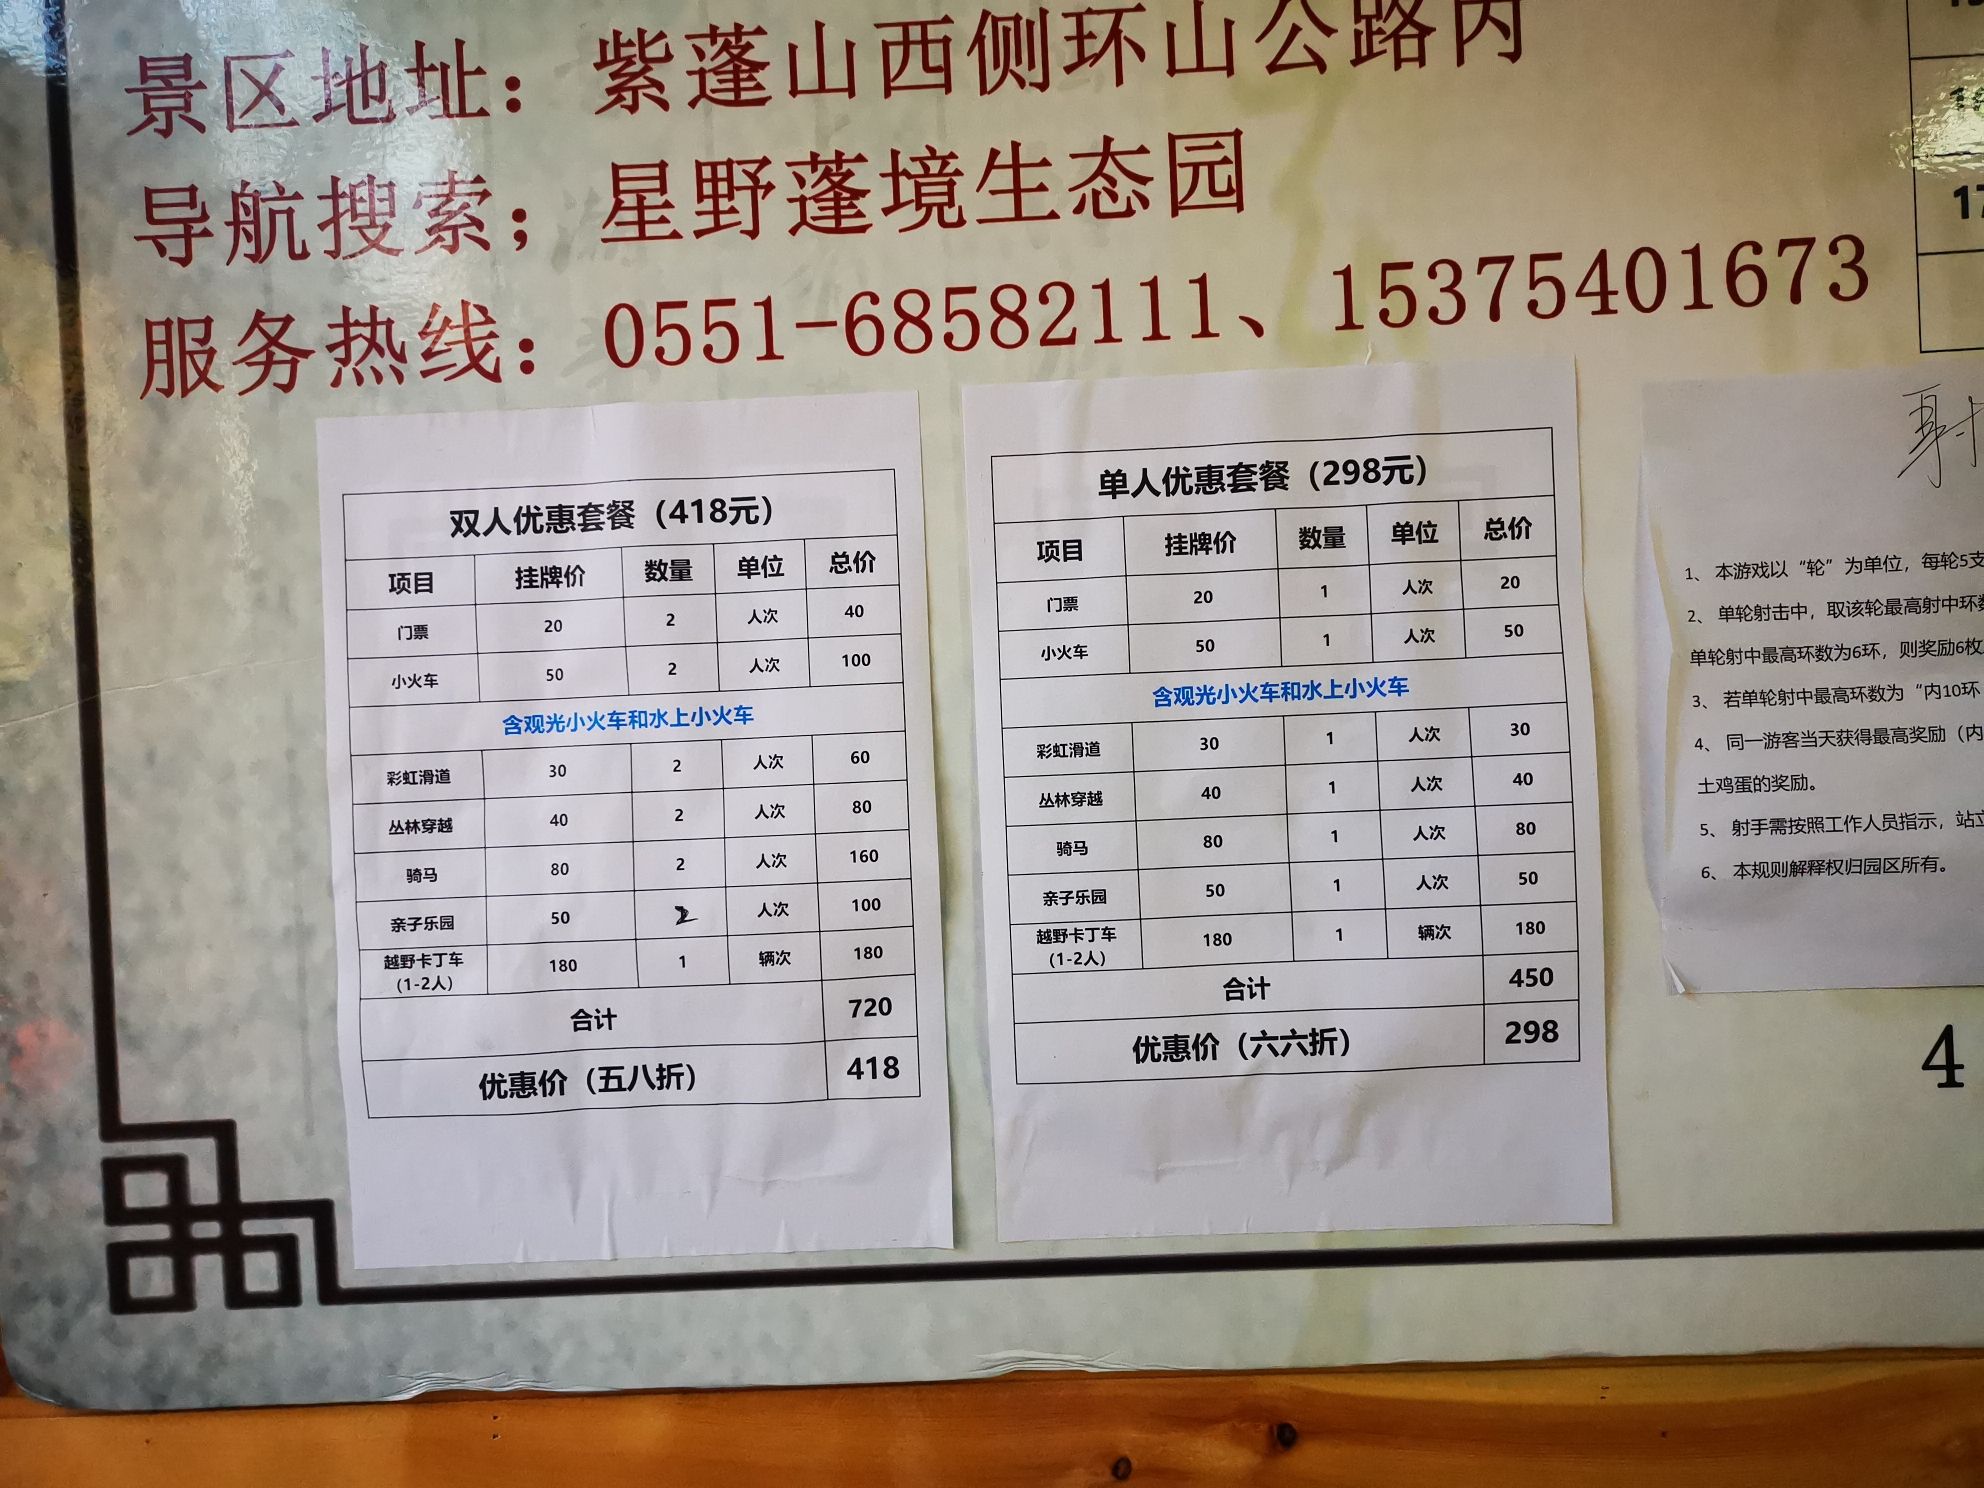 景区地址：紫蓬山西侧环山公路内
导航搜索；星野蓬境生态园
服务热线：0551-68582111、15375401673
双人优惠套餐（418元）
项目 挂牌价 数量 单位 总价
门票 20 2 人次 40
小火车 50 2 人次 100
含观光小火车和水上小火车
彩虹滑道 30 2 人次 60
丛林穿越 40 2 人次 80
骑马 80 2 人次 160
亲子乐园 50 2 人次 100
越野卡丁车 180 1 辆次 180
(1-2人)
合计 720
优惠价（五八折） 418
单人优惠套餐（298元）
项目 挂牌价 数量 单位 总价
门票 20 1 人次 20
小火车 50 1 人次 50
含观光小火车和水上小火车
彩虹滑道 30 1 人次 30
丛林穿越 40 1 人次 40
骑马 80 1 人次 80
亲子乐园 50 1 人次 50
越野卡丁车 180 1 辆次 180
(1-2人)
合计 450
优惠价（六六折） 298
17
射
1、 本游戏以“轮”为单位，每轮5支
2、 单轮射击中，取该轮最高射中环数
单轮射中最高环数为6环，则奖励6枚
3、 若单轮射中最高环数为“内10环
4、 同一游客当天获得最高奖励（内
土鸡蛋的奖励。
5、 射手需按照工作人员指示，站立
6、 本规则解释权归园区所有。
4